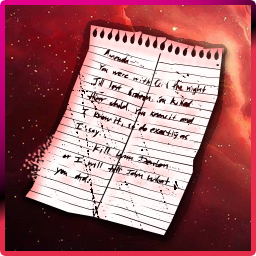 Amanda
You were with Cecil the night
Jill lost Gideon. You killed
their child. You know it and
I know it, so do exactly as
I say:
Kill Lynn Denlon
or I will tell John what
you did.